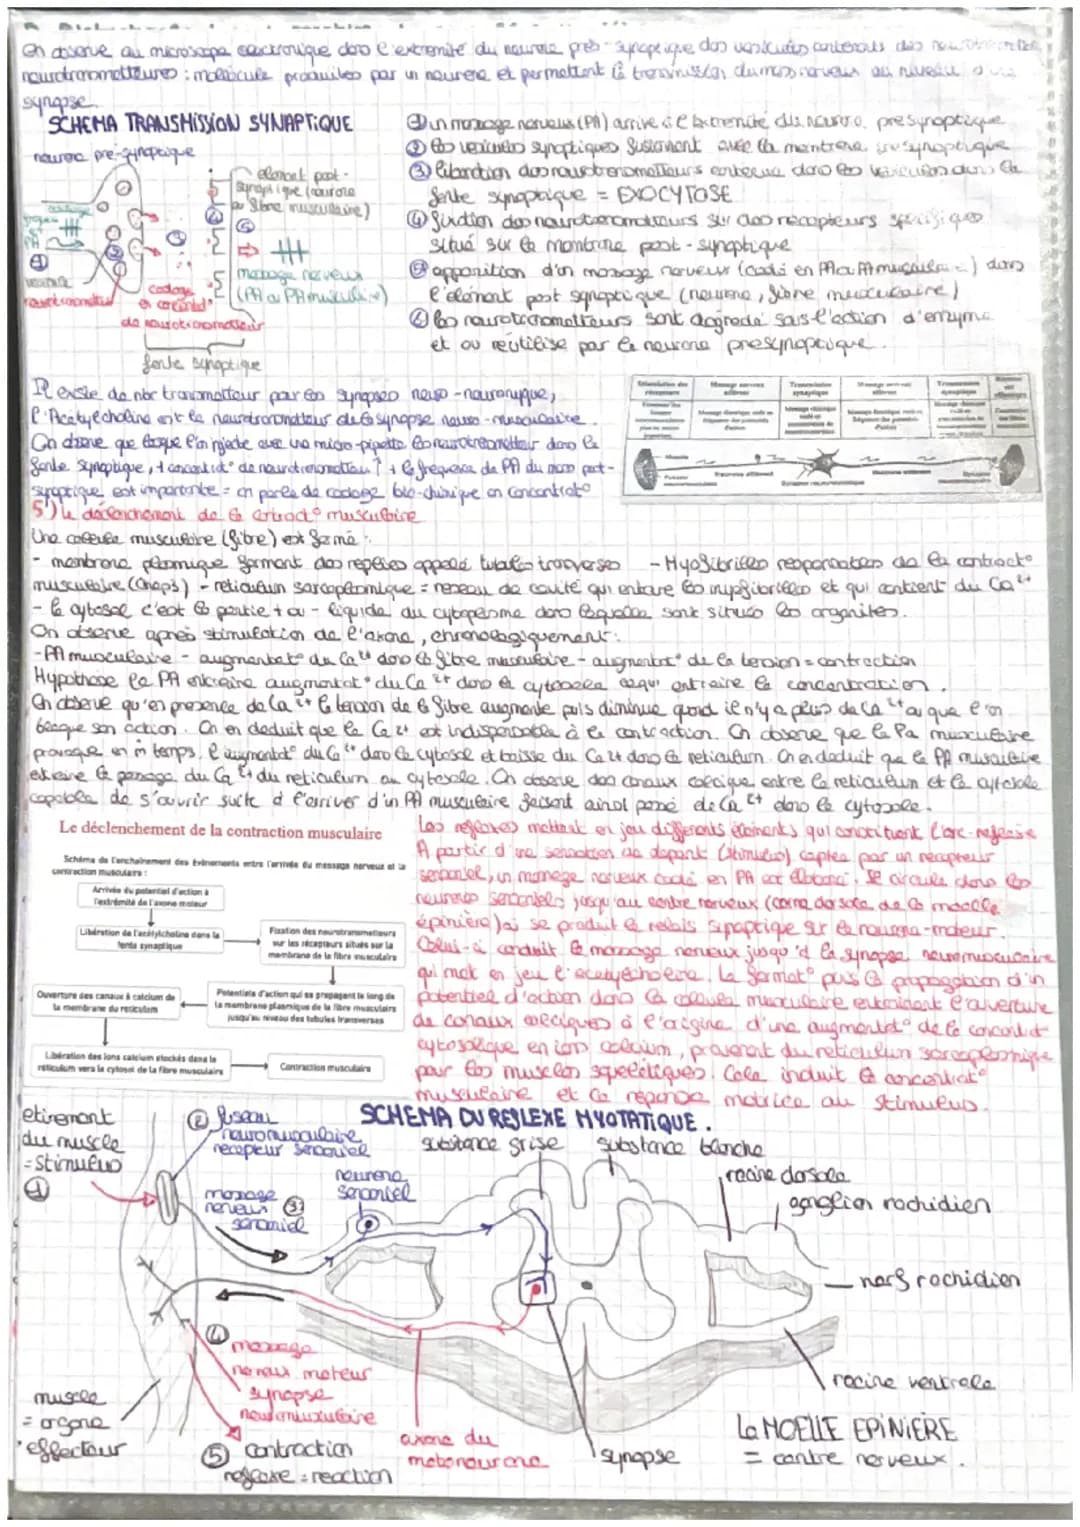 On observe au microscope electronique dans l'extremité du neurone pré-synaptique des vesicules contenants des
neurotransmetteurs : molécule produites par un neurone et permettant la transmission du mess nerveux au niveau d'une
synapse.
SCHEMA TRANSMISSION SYNAPTIQUE
neurone pré-synaptique
élément post-
synaptique (neurone
ou fibre musculaire)
message nerveux
(PA ou PA musculaire)
codage
en concentrat°
de neurotransmetteur
fente synaptique
① un message nerveux (PA) arrive à l'extremité du neurone présynaptique
② les vesicules synaptiques fusionnent avec la membrane
③ libération des neurotransmetteurs contenus dans les vesicules dans la
fente synaptique = EXOCYTOSE
④ fixation des neurotransmetteurs sur des recepteurs spécifiques
situé sur la membrane post-synaptique
⑤ apparition d'un message nerveux (codé en PA ou PA musculaire) dans
l'élément post synaptique (neurone, fibre musculaire)
⑥ les neurotransmetteurs sont dégradé sous l'action d'enzyme
et ou réutilisé par le neurone présynaptique.
Il existe de nbr transmetteur pour les synapses neuro-neuronique,
l'Acetylcholine est le neurotransmetteur de la synapse neuro-musculaire.
On observe que lorsque l'on injecte avec une micro-pipette les neurotransmetteur dans la
fente synaptique, + concentrat° de neurotransmetteur ↑ + la frequence de PA du mess post-
synaptique est importante = on parle de codage bio-chimique en concentrat°
5) le déclenchement de la contract° musculaire
Une cellule musculaire (fibre) est formé :
- membrane plasmique formant des replies appelé tubules transverses - Myofibrilles responsables de la contract°
musculaire - reticulum sarcoplasmique = reseau de cavité qui entoure les myofibrilles et qui contient du Ca²⁺
- le cytosol c'est la partie + ou - liquide du cytoplasme dans laquelle sont situés les organites.
On observe après stimulation de l'axone, chronologiquement :
- PA musculaire - augmentat° du Ca²⁺ dans la fibre musculaire - augmentat° de la tension = contraction
Hypothèse le PA entraine augmentat° du Ca²⁺ dans le cytosole ce qui entraine la
On observe qu'en presence de Ca²⁺ la tension de la fibre augmente puis diminue quand il n'y a plus de Ca²⁺ ou que l'on
bloque son action. On en deduit que le Ca²⁺ est indispensable à la contraction. On observe que le PA musculaire
provoque en m temps, l'augmentat° du Ca²⁺ dans le cytosol et baisse du Ca²⁺ dans le reticulum. On en deduit que le PA musculaire
entraine le passage du Ca²⁺ du reticulum au cytosole. On observe des canaux calcique entre le reticulum et le cytosole
capable de s'ouvrir suite à l'arriver d'un PA musculaire faisant ainsi passé de Ca²⁺ dans le cytosole.
Le déclenchement de la contraction musculaire
Schéma de l'enchaînement des évènements entre l'arrivée du message nerveux et la
contraction musculaire :
Arrivée du potentiel d'action à
l'extrémité de l'axone moteur
Libération de l'acétylcholine dans la
fente synaptique
Fixation des neurotransmetteurs
sur les récepteurs situés sur la
membrane de la fibre musculaire
Potentiels d'action qui se propagent le long de
la membrane plasmique de la fibre musculaire
jusqu'au niveau des tubules transverses
Ouverture des canaux à calcium de
la membrane du reticulum
Libération des ions calcium stockés dans le
réticulum vers le cytosol de la fibre musculaire
Contraction musculaire
Les reflexes mettent en jeu differents élements qui constituent l'arc-reflexe
A partir d'une sensation de depart (stimulus) captée par un recepteur
sensoriel, un message nerveux codé en PA est élaboré. Il circule dans les
neurones sensoriels jusqu'au centre nerveux (corne dorsale de la moelle
épinière) où se produit le relais synaptique sur le neurone-moteur.
Celui-ci conduit le message nerveux jusqu'à la synapse neuromusculaire
qui met en jeu l'acetylcholine. La format° puis la propagation d'un
potentiel d'action dans la cellule musculaire entrainent l'ouverture
de canaux calciques à l'origine d'une augmentat° de la concentrat°
cytosolique en ions calcium, provenant du reticulum sarcoplasmique
pour les muscles squelettiques. Cela induit la contract°
musculaire et la reponse motrice au stimulus.
SCHEMA DU REFLEXE MYOTATIQUE.
etirement
du muscle
= stimulus
①
② fuseau
neuromusculaire
recepteur sensoriel
message
nerveux ③
sensoriel
neurone
sensoriel
substance grise
substance blanche
racine dorsale
ganglion rachidien
nerf rachidien
racine ventrale
④ message
nerveux moteur
synapse
neuromusculaire
muscle
= organe
effecteur
⑤ contraction
reflexe = reaction
axone du
motoneurone
synapse
La MOELLE EPINIERE
= centre nerveux.